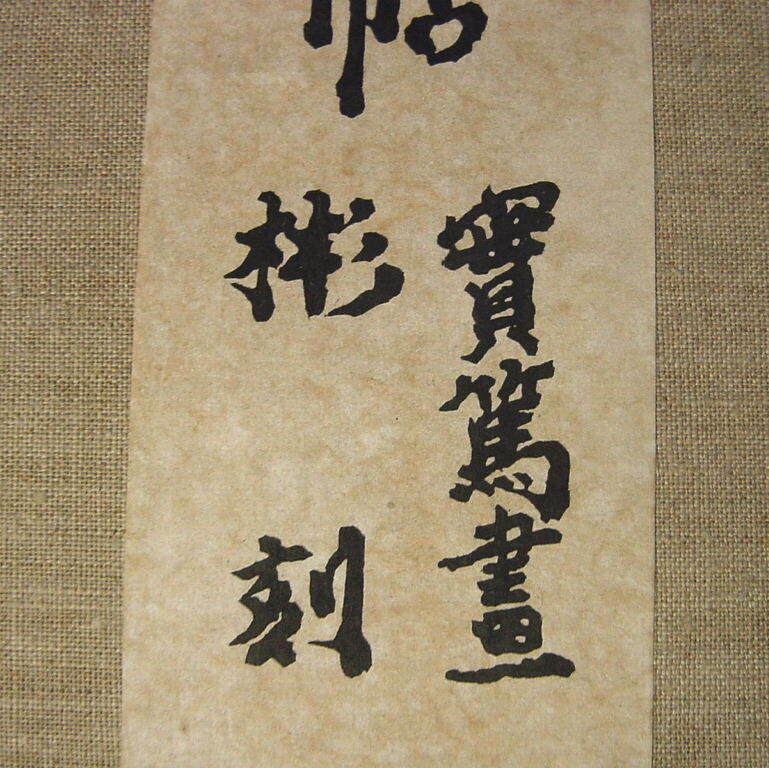 帖
實篤畫
彬刻